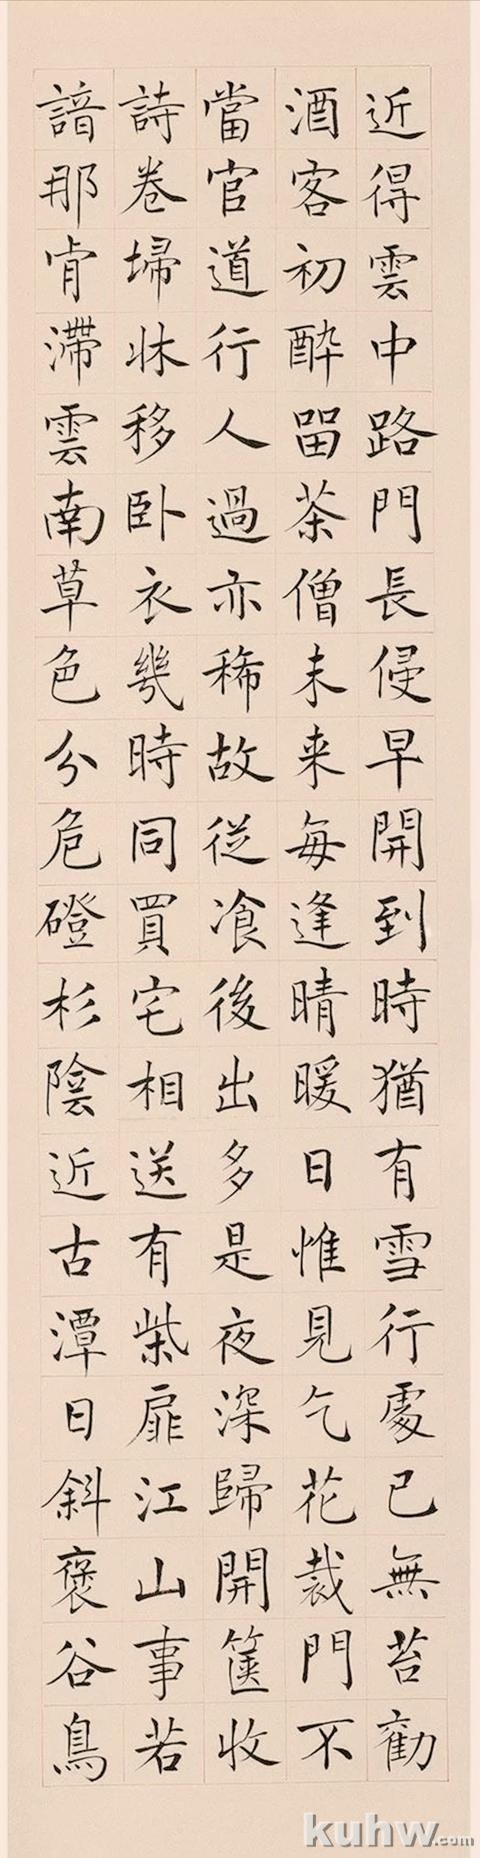 近得雲中路門長侵早開到時猶有雪行處已無苔勸
酒客初醉留茶僧未来每逢晴暖日惟見乞花栽門不
當官道行人過亦稀故從飡後出多是夜深歸開篋收
詩卷埽牀移卧衣幾時同買宅相送有柴扉江山事若
諳那肯滯雲南草色分危磴杉陰近古潭日斜褒谷鳥
kuhw.com